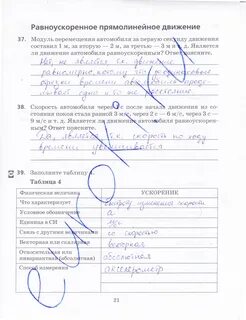 Равноускоренное прямолинейное движение
37. Модуль перемещения автомобиля за первую секунду движения
составил 1 м, за вторую — 2 м, за третью — 3 м и т. д. Является
ли движение автомобиля равноускоренным? Ответ поясните.
Нет, не является, т.к. движение
38. Скорость автомобиля через 1 с после начала движения из со-
стояния покоя стала равной 3 м/с, через 2 с — 6 м/с, через 3 с —
9 м/с и т. д. Является ли движение автомобиля равноускорен-
ным? Ответ поясните.
Да, является, т.к. скорость по ходу
времени увеличивается
39. Заполните таблицу 4.
Таблица 4
Физическая величина
УСКОРЕНИЕ
Что характеризует
скорость изменения скорости
Условное обозначение
a
Единица в СИ
Связь с другими величинами
со скоростью
Векторная или скалярная
векторная
Относительная или
инвариантная (абсолютная)
абсолютная
Способ измерения
акселерометр
21